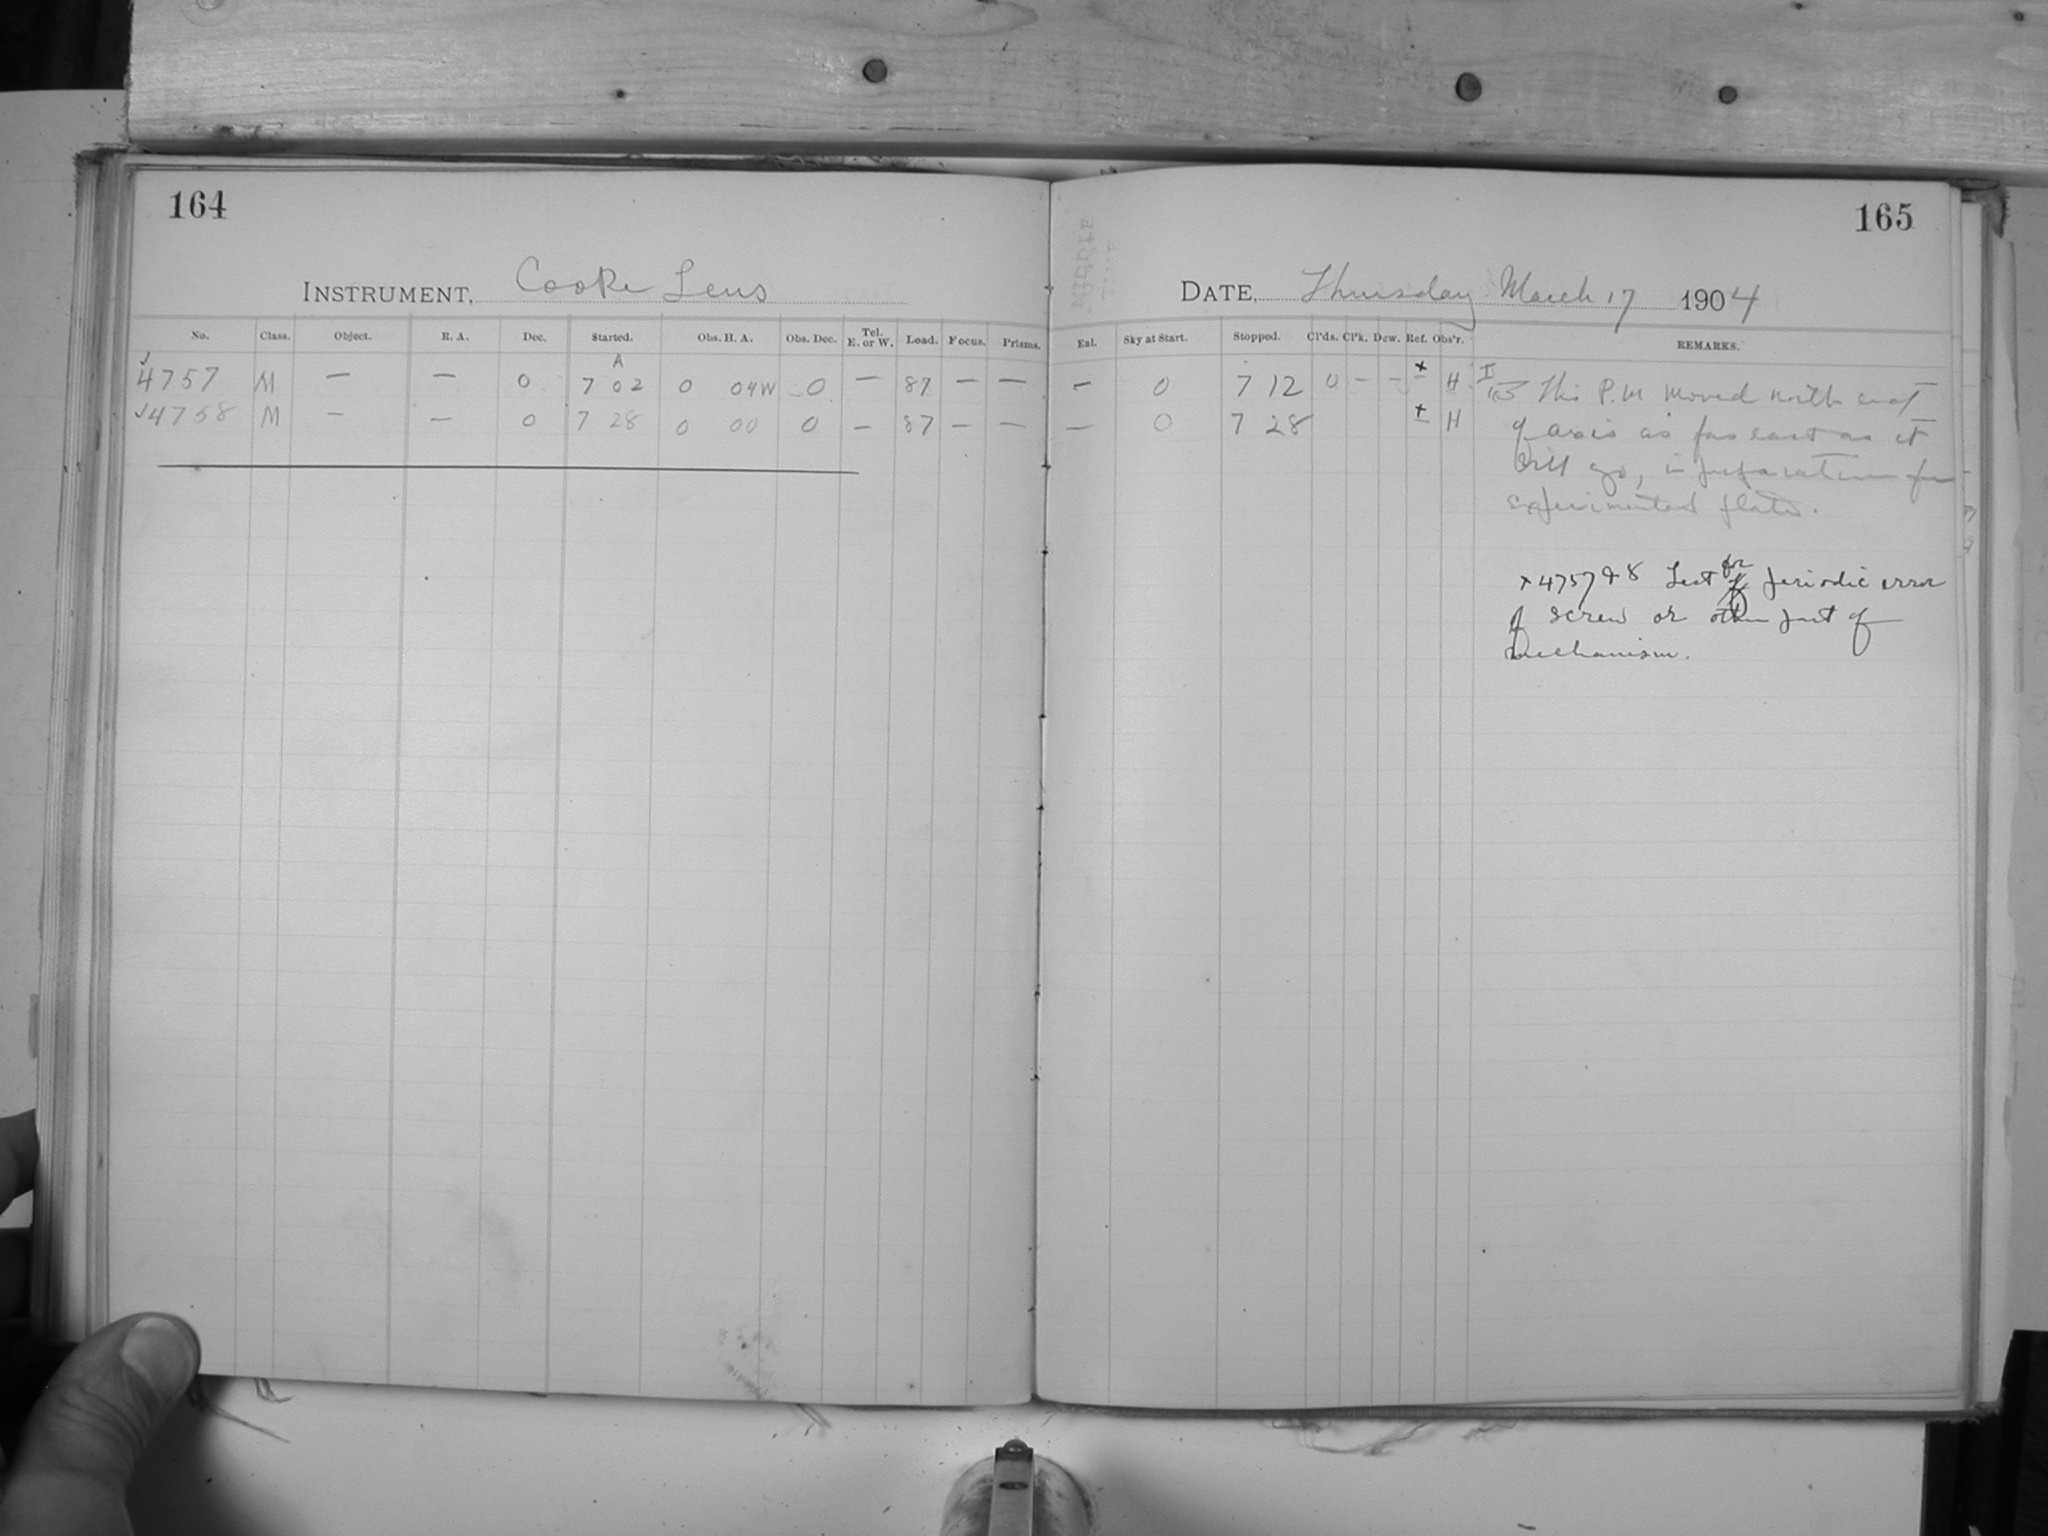 164
INSTRUMENT, Cooke Lens
No. Class. Object. R. A. Dec. Started. Obs. H. A. Obs. Dec. Tel. E. or W. Load. Focus. Prisms.
A
4757 M — — 0 7 02 0 04W 0 — 87 — —
4758 M — — 0 7 28 0 00 0 — 87 — —
165
DATE, Thursday March 17 1904
Ext. Sky at Start. Stopped. Cl'ds. Cl'k. Dew. Ref. Obs'r. REMARKS.
— 0 7 12 0 — — x H
— 0 7 28 x H
This P.M moved north end
of axis as far east as it
will go, in preparation for
experimental plates.
x 4757 & 8 Test for periodic error
of screw or other part of
mechanism.